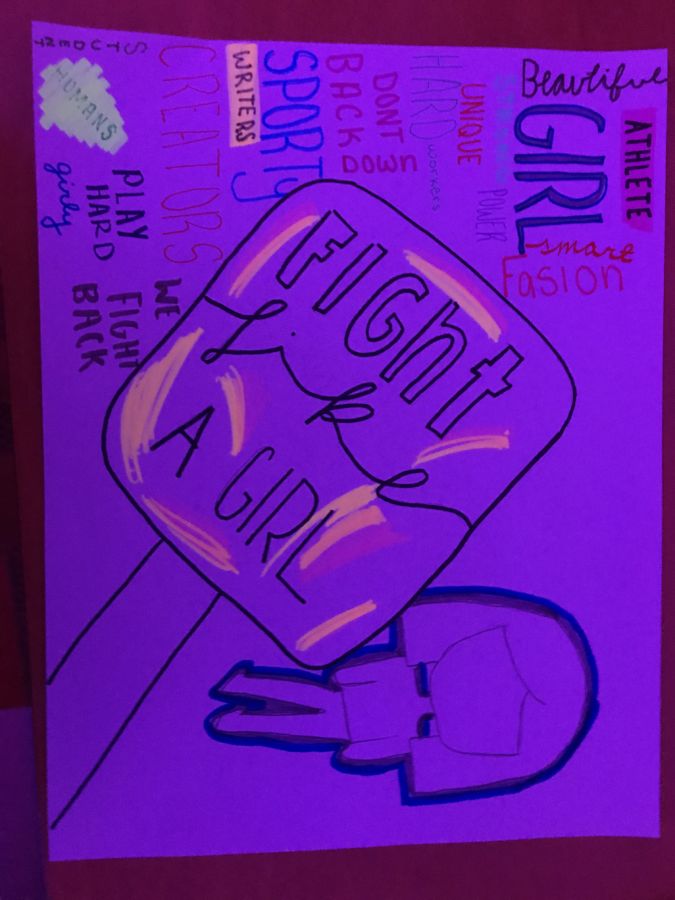 Beautiful
ATHLETE
GIRL
smart
Fasion
POWER
UNIQUE
HARD
workers
DONT
BACK
DOWN
SPORTY
WRITERS
CREATORS
STUDENT
HUMANS
PLAY
HARD
girly
WE
FIGHT
BACK
FIGht
like
A GIRL